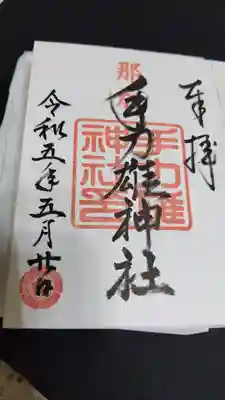 奉拝
那
手力雄神社
手力雄
神社
令和五年五月廿日